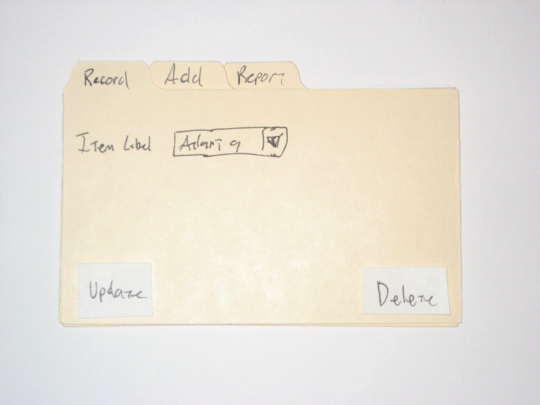 Record Add Report
Item Label
Update Delete